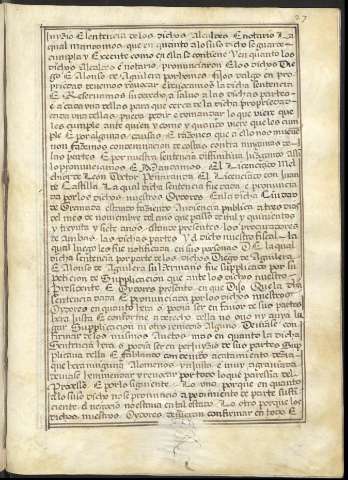 27
Juydio E sentencia de los dichos Alcaldes E notario La
qual mandamos que en quanto a lo suso dicho se guarde
cumpla y Execute como en ella se contiene Y en quanto los
dichos Alcaldes E notario pronunciaron E los dichos Die
go E Alonso de Aguilera por hombres fijos dalgo en pro
priedad devemos revocar E revocamos la dicha sentencia
E Reservamos su derecho a salvo a las dichas partes
e a cada una dellas para que cerca de la dicha propriedad
cada una dellas pueda pedir e demandar lo que viere que
les cumple ante quien y como y quando viere que les cum
ple E por algunas causas E razones que a ello nos mueve
non fazemos condemnacion de costas contra ninguna de
las partes E por nuestra sentencia difinitiva juzgando assi
lo pronunciamos E Mandamos El Licenciado Mel
chior de Leon Doctor Peñaranda El Licenciado Juan
de Castilla La qual dicha sentencia fue dada e pronuncia
da por los dichos nuestros Oydores En la dicha Ciudad
de Granada estando faziendo Audiencia publica A tres dias
del mes de noviembre del año que passo de mil y quinientos
y treynta y siete años estando presentes los procuradores
de Ambas las dichas partes Y el dicho nuestro fiscal la
qual luego les fue notificada en sus personas E de la qual
dicha sentencia por parte de los dichos Diego de Aguilera
E Alonso de Aguilera su hermano fue supplicado por su
peticion de Supplicacion que ante los dichos nuestro
Presidente E Oydores presento en que Dixo Que la dha
sentencia dada E pronunciada por los dichos nuestros
Oydores en quanto hera o podia ser en favor de sus partes
hera justa E conforme a derecho della no ovo ny avya lu
gar Supplicacion ni otro remedio Alguno Deviase con
firmar de los mismos Auctos mas en quanto la dicha
Sentencia hera o podia ser en perjuyzio de sus partes Sup
plicava della E fablando con devido acatamiento dezia
que hera ninguna Alomenos injusta e muy agraviada
deviase enmendar y revocar por todo lo que paresçia del
Processo E por lo siguiente Lo uno porque en quanto
a lo suso dicho no se pronuncio a pedimiento de parte suffi
ciente E negocio no estava en tal estado Lo otro porque los
dichos nuestros Oydores devieran confirmar en todo E